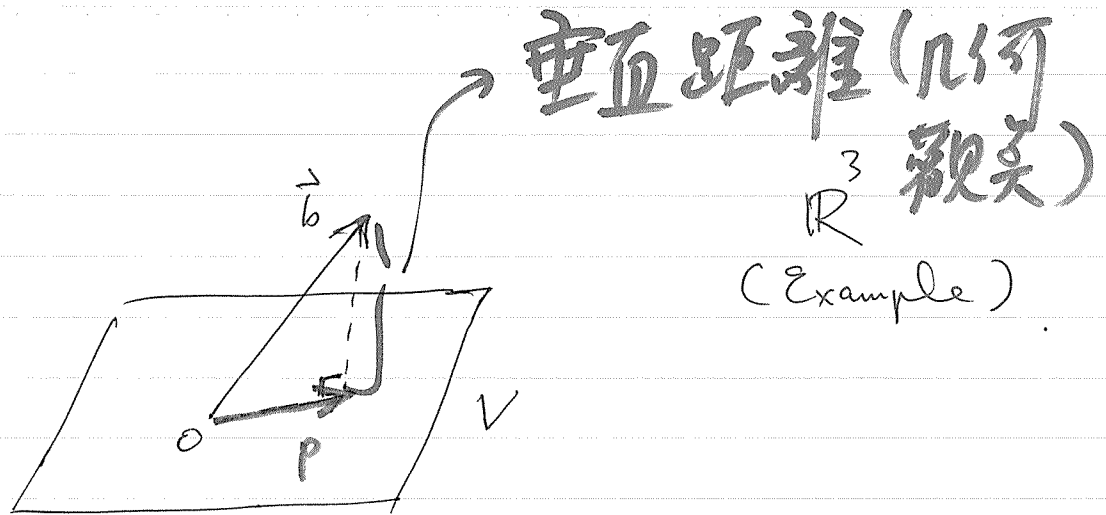 垂直距離(几何
觀点)
ℝ³
(Example).
b⃗
O
p
V